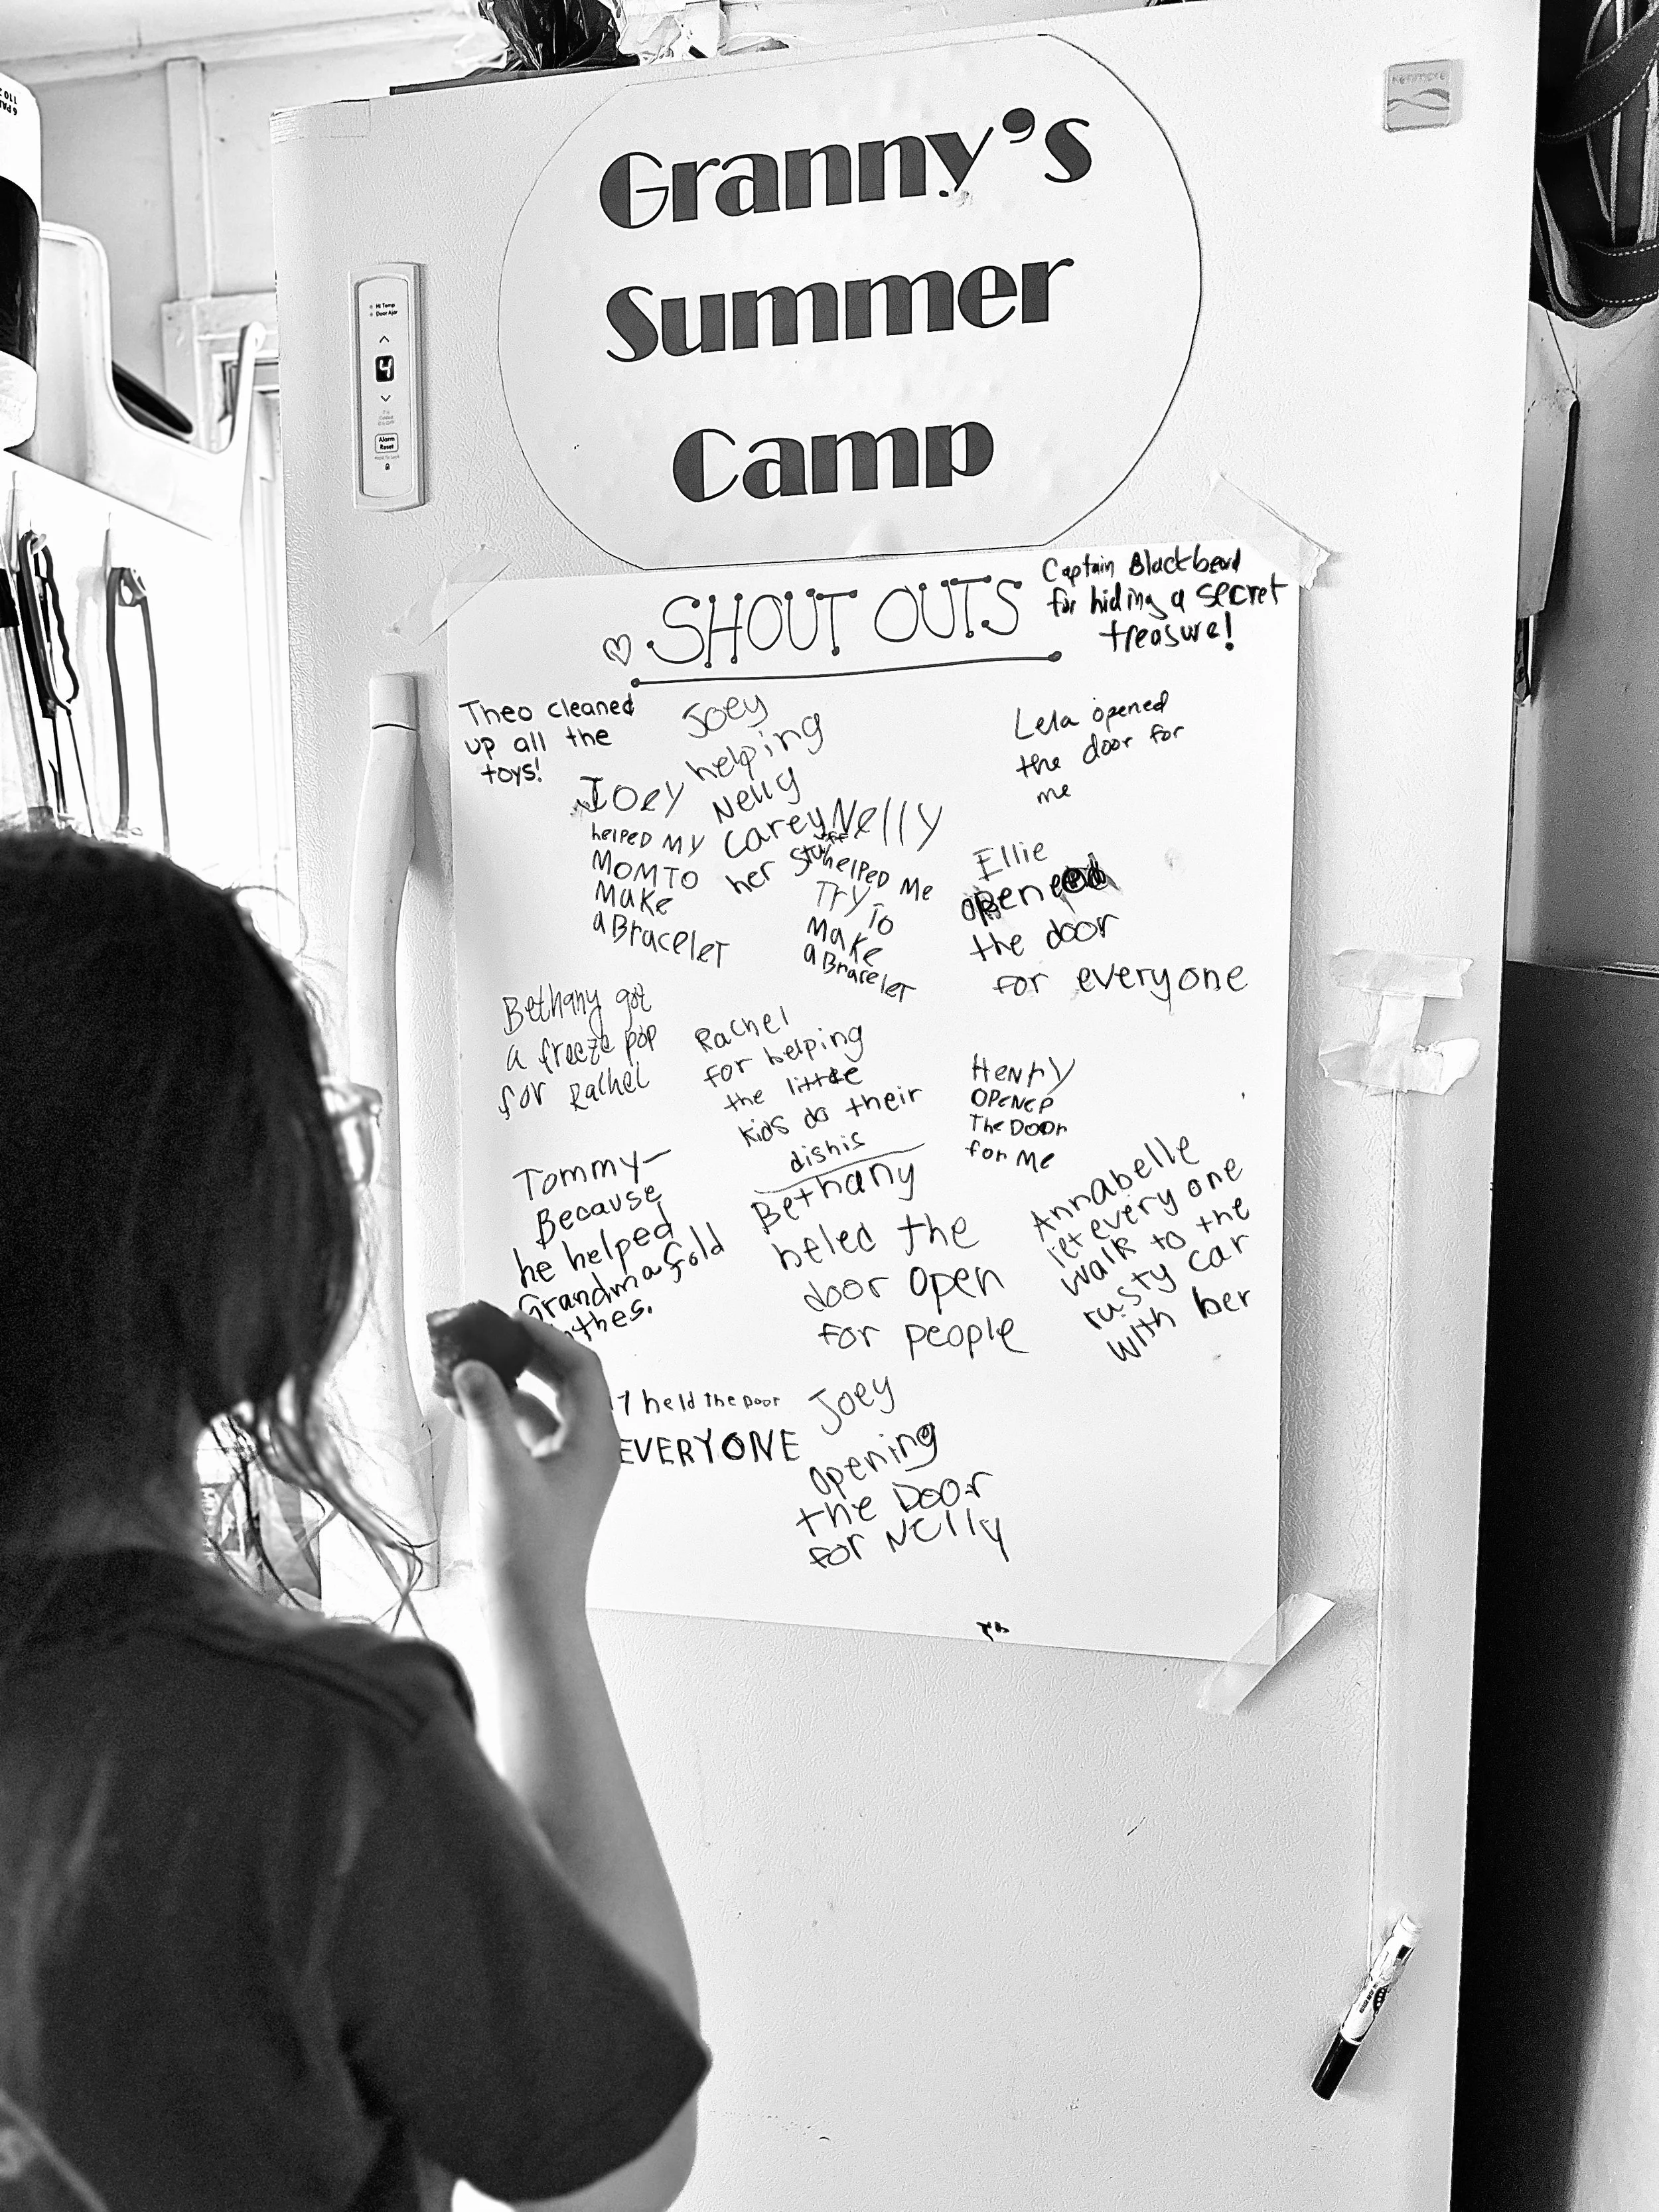 Granny's
Summer
Camp
Kenmore
Hi Temp
Door Ajar
4
Alarm
Reset
SHOUT OUTS
Captain Blackbeard
for hiding a secret
treasure!
Theo cleaned
up all the
toys!
Joey
helping
Nelly
carey
her stuff
Lela opened
the door for
me
Joey
helped my
mom to
make
a Bracelet
Nelly
helped me
Try To
make
a Bracelet
Ellie
opened
the door
for everyone
Bethany got
a freeze pop
for Rachel
Rachel
for helping
the little
kids do their
dishis
Henry
opened
The Door
for me
Tommy—
Because
he helped
Grandma fold
thes.
Bethany
heled the
door open
for people
Annabelle
let every one
walk to the
rusty car
with her
held the Door
EVERYONE
Joey
opening
the Door
for Nelly